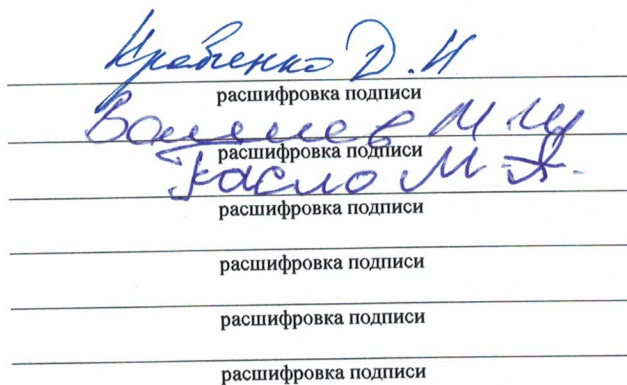 Кравченко Д.И
расшифровка подписи
М.Ш
расшифровка подписи
М.А.
расшифровка подписи
расшифровка подписи
расшифровка подписи
расшифровка подписи